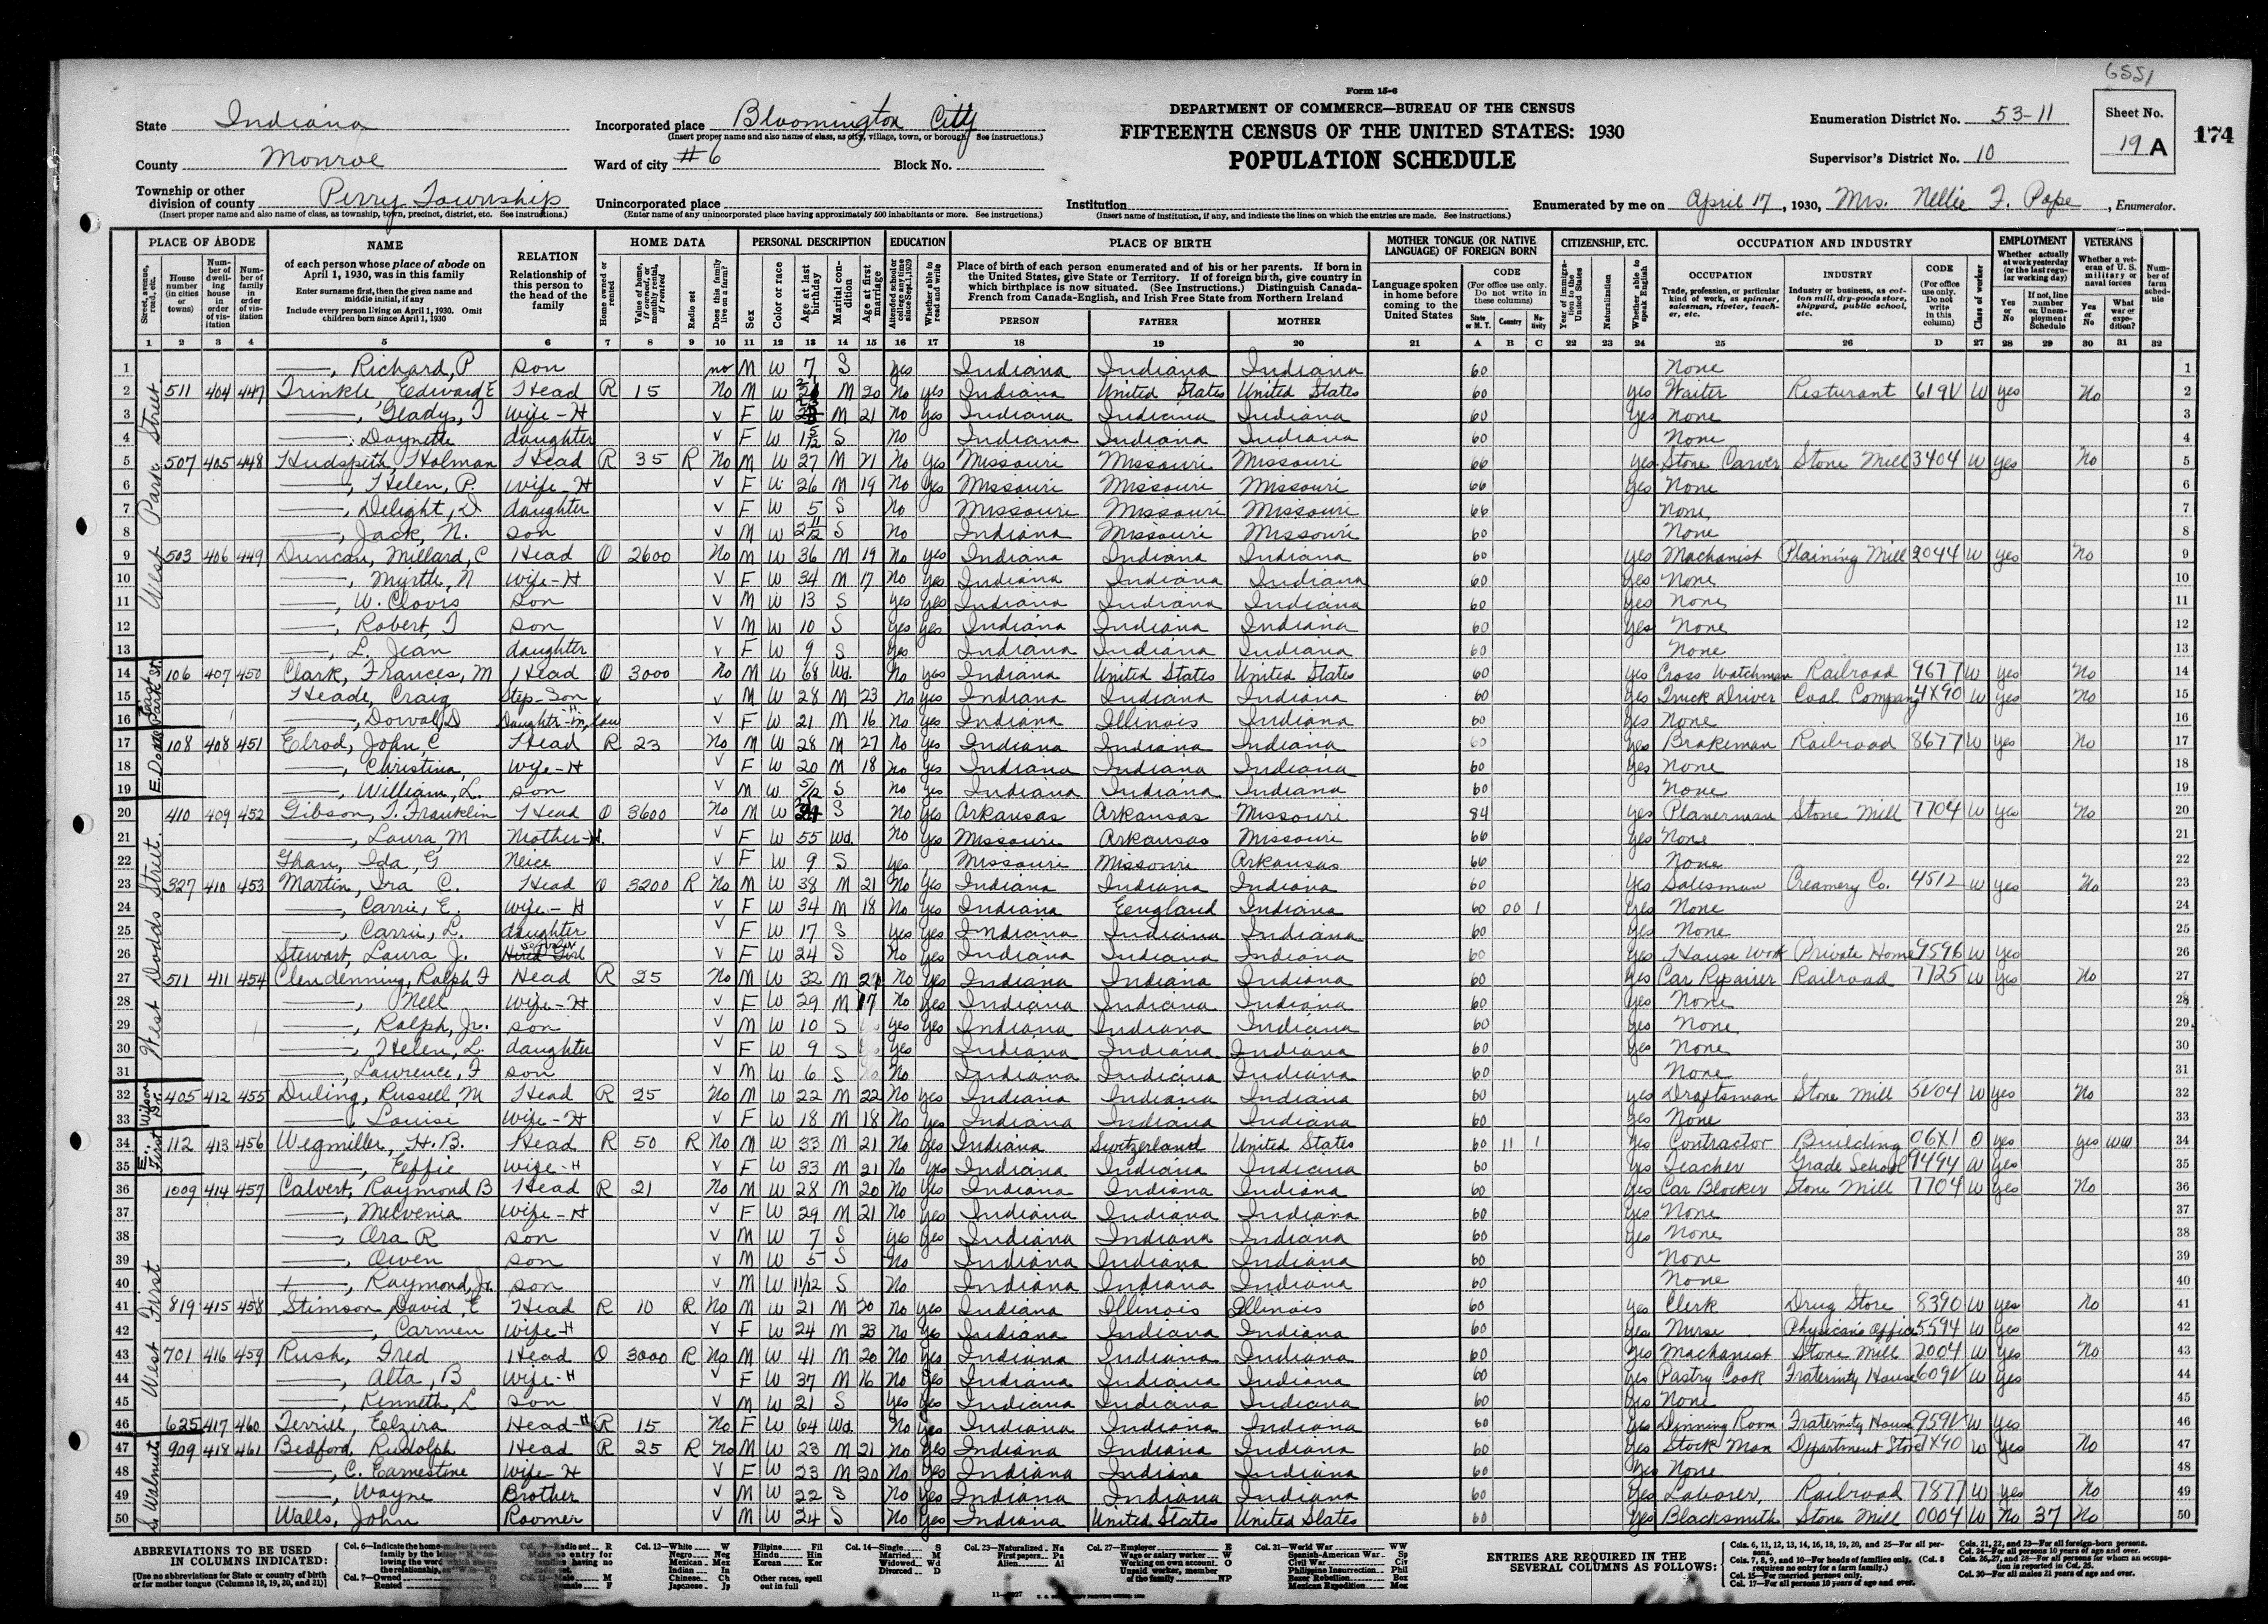 6551
Form 15-6
DEPARTMENT OF COMMERCE—BUREAU OF THE CENSUS
FIFTEENTH CENSUS OF THE UNITED STATES: 1930
POPULATION SCHEDULE
State Indiana
County Monroe
Township or other division of county Perry Township
(Insert proper name and also name of class, as township, town, precinct, district, etc. See instructions.)
Incorporated place Bloomington City
(Insert proper name and also name of class, as city, village, town, or borough. See instructions.)
Ward of city #6 Block No.
Unincorporated place
(Enter name of any unincorporated place having approximately 500 inhabitants or more. See instructions.)
Institution
(Insert name of institution, if any, and indicate the lines on which the entries are made. See instructions.)
Enumeration District No. 53-11
Supervisor's District No. 10
Sheet No. 19 A
174
Enumerated by me on April 17, 1930, Mrs. Nellie F. Pope, Enumerator.
PLACE OF ABODE NAME RELATION HOME DATA PERSONAL DESCRIPTION EDUCATION PLACE OF BIRTH MOTHER TONGUE (OR NATIVE LANGUAGE) OF FOREIGN BORN CITIZENSHIP, ETC. OCCUPATION AND INDUSTRY EMPLOYMENT VETERANS
1 —, Richard, P son no M W 7 S yes Indiana Indiana Indiana 60 None 1
2 511 404 447 Trinkle, Edward E Head R 15 No M W M 20 No yes Indiana United States United States 60 yes Waiter Resturant 619V W yes No 2
3 —, Gladys, I wife-H v F W M 21 No yes Indiana Indiana Indiana 60 yes none 3
4 —, Daynette daughter v F W 1 5/12 S no Indiana Indiana Indiana 60 None 4
5 507 405 448 Hudspith, Holman Head R 35 R No M W 27 M 21 No yes Missouri Missouri Missouri 66 yes Stone Carver Stone Mill 3404 W yes No 5
6 —, Helen, P. wife-H v F W 26 M 19 No yes Missouri Missouri Missouri 66 yes None 6
7 —, Delight, D daughter v F W 5 S no Missouri Missouri Missouri 66 None 7
8 —, Jack, N. son v M W 2 11/12 S no Indiana Missouri Missouri 60 None 8
9 503 406 449 Duncan, Millard, C Head O 2600 No M W 36 M 19 No yes Indiana Indiana Indiana 60 yes Machanist Plaining Mill 2044 W yes No 9
10 —, Myrth, N wife-H v F W 34 M 17 No yes Indiana Indiana Indiana 60 yes None 10
11 —, W. Clovis son v M W 13 S yes yes Indiana Indiana Indiana 60 yes None 11
12 —, Robert, I son v M W 10 S yes yes Indiana Indiana Indiana 60 yes None 12
13 —, L. Jean daughter v F W 9 S yes Indiana Indiana Indiana 60 None 13
14 106 407 450 Clark, Frances, M Head O 3000 No M W 68 Wd. No yes Indiana United States United States 60 yes Cross Watchman Railroad 9677 W yes No 14
15 Heade, Craig Step-Son v M W 28 M 23 No yes Indiana Indiana Indiana 60 yes Truck Driver Coal Company 4X90 W yes No 15
16 —, Dorval, D Daughter-in-law H v F W 21 M 16 no yes Indiana Illinois Indiana 60 yes None 16
17 108 408 451 Elrod, John, C Head R 23 No M W 28 M 27 No yes Indiana Indiana Indiana 60 yes Brakeman Railroad 8677 W yes No 17
18 —, Christina, wife-H v F W 20 M 18 no yes Indiana Indiana Indiana 60 yes None 18
19 —, William, L. son v M W 5/12 S no yes Indiana Indiana Indiana 60 None 19
20 410 409 452 Gibson, T. Franklin Head O 3600 No M W S No yes Arkansas Arkansas Missouri 84 yes Planerman Stone Mill 7704 W yes No 20
21 —, Laura, M Mother-H. v F W 55 Wd. No yes Missouri Arkansas Missouri 66 yes None 21
22 Ghan, Ida, G Neice v F W 9 S yes Missouri Missouri Arkansas 66 None 22
23 327 410 453 Martin, Ira C. Head O 3200 R No M W 38 M 21 No yes Indiana Indiana Indiana 60 yes Salesman Creamery Co. 4512 W yes No 23
24 —, Carrie, E. wife-H v F W 34 M 18 No yes Indiana Eengland Indiana 60 00 1 yes None 24
25 —, Carrie, L. daughter v F W 17 S yes yes Indiana Indiana Indiana 60 yes None 25
26 Stewart, Laura J. Hired Girl servant v F W 24 S no yes Indiana Indiana Indiana 60 yes House Work Private Home 9596 W yes 26
27 511 411 454 Clendenning, Ralph F Head R 25 No M W 32 M No yes Indiana Indiana Indiana 60 yes Car Repairer Railroad 7725 W yes No 27
28 —, Nell wife-H v F W 29 M 17 no yes Indiana Indiana Indiana 60 yes None 28
29 —, Ralph, Jr. son v M W 10 S yes yes Indiana Indiana Indiana 60 yes None 29
30 —, Helen, L. daughter v F W 9 S yes Indiana Indiana Indiana 60 yes None 30
31 —, Lawrence, F son v M W 6 S No Indiana Indiana Indiana 60 None 31
32 405 412 455 Duling, Russell, M Head R 25 No M W 22 M 22 No yes Indiana Indiana Indiana 60 yes Draftsman Stone Mill 5V04 W yes No 32
33 —, Louise wife-H v F W 18 M 18 No yes Indiana Indiana Indiana 60 yes None 33
34 112 413 456 Wegmiller, H. B. Head R 50 R No M W 33 M 21 No yes Indiana Switzerland United States 60 11 1 yes Contractor Building 06X1 O yes yes WW 34
35 —, Eeffie wife-H v F W 33 M 21 No yes Indiana Indiana Indiana 60 yes Teacher Grade School 9494 W yes 35
36 1009 414 457 Calvert, Raymond B Head R 21 No M W 28 M 20 No yes Indiana Indiana Indiana 60 yes Car Blocker Stone Mill 7704 W yes No 36
37 —, Melvenia wife-H v F W 29 M 21 No yes Indiana Indiana Indiana 60 yes None 37
38 —, Ora R son v M W 7 S yes yes Indiana Indiana Indiana 60 yes None 38
39 —, Owen son v M W 5 S no Indiana Indiana Indiana 60 None 39
40 —, Raymond, Jr. son v M W 11/12 S No Indiana Indiana Indiana 60 None 40
41 819 415 458 Stimson, David, E Head R 10 R No M W 21 M 20 no yes Indiana Illinois Illinois 60 yes Clerk Drug Store 8390 W yes No 41
42 —, Carmen wife-H v F W 24 M 23 no yes Indiana Indiana Indiana 60 yes Nurse Physicans Office 5594 W yes 42
43 701 416 459 Rush, Fred Head O 3000 R No M W 41 M 20 No yes Indiana Indiana Indiana 60 yes Machanist Stone Mill 2004 W yes No 43
44 —, Alta, B wife-H v F W 37 M 16 No yes Indiana Indiana Indiana 60 yes Pastry Cook Fraternity House 609V W yes 44
45 —, Kenneth, L son v M W 21 S yes yes Indiana Indiana Indiana 60 yes None 45
46 625 417 460 Terrill, Elzira Head-H R 15 No F W 64 Wd. No yes Indiana Indiana Indiana 60 yes Dinning Room Fraternity House 959V W yes 46
47 909 418 461 Bedford, Rudolph Head R 25 R No M W 23 M 21 no yes Indiana Indiana Indiana 60 yes Stock Man Department Store 7X90 W yes No 47
48 —, C. Earnestine wife-H v F W 23 M 20 No yes Indiana Indiana Indiana 60 yes None 48
49 —, Wayne Brother v M W 22 S no yes Indiana Indiana Indiana 60 yes Laborer, Railroad 7877 W yes No 49
50 Walls, John Roomer v M W 24 S No yes Indiana United States United States 60 yes Blacksmith Stone Mill 0004 W No 37 No 50
West Park Street
East Park St.
E. Dodds
West Dodds Street.
Wilson
E. First
West First
S. Walnut
ABBREVIATIONS TO BE USED IN COLUMNS INDICATED:
[Use no abbreviations for State or country of birth or for mother tongue (Columns 18, 19, 20, and 21)]
ENTRIES ARE REQUIRED IN THE SEVERAL COLUMNS AS FOLLOWS: